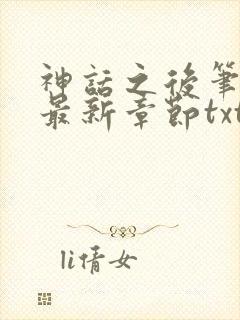 神話之後筆
最新章節txt
li倩女